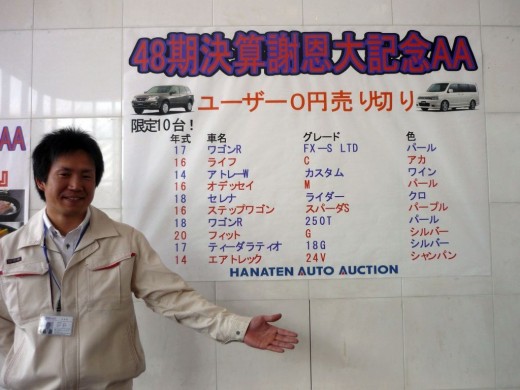 48期決算謝恩大記念AA
ユーザー0円売り切り
限定10台!
年式 車名 グレード 色
17 ワゴンR FX-S LTD パール
16 ライフ C アカ
14 アトレーW カスタム ワイン
16 オデッセイ M パール
18 セレナ ライダー クロ
16 ステップワゴン スパーダS パープル
18 ワゴンR 250T パール
20 フィット G シルバー
17 ティーダラティオ 18G シルバー
14 エアトレック 24V シャンパン
HANATEN AUTO AUCTION
AA